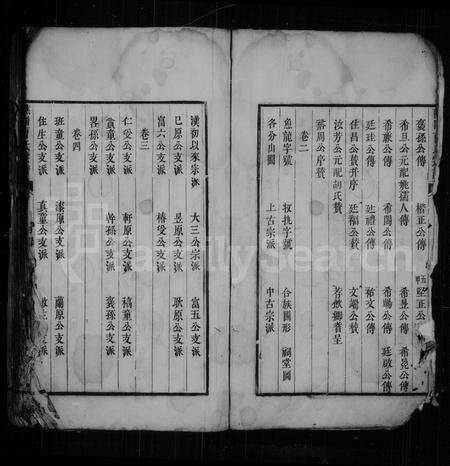 褒孫公傳 楷正公傳 堅正公
希旦公元配姚孺人傳 希聖公傳 希堯公傳
希藤公傳 希閣公傳 希暘公傳 廷啟公傳
廷珪公傳 廷禮公傳 佑文公傳
佳昌公贊并序 廷福公贊 文龍公贊
汝芳公元配胡氏贊
蔡周公序贊
卷二
魚龍字號 取批字號 合族圖形 祠堂圖
各分山圖 上古宗派 中古宗派
漢初以來宗派 大三公宗派 富五公支派
巳原公支派 昱原公支派 耿原公支派
富六公支派 椿受公支派
卷三
仁受公支派 軒原公支派 禧童公支派
貪童公支派 昇孫公支派 褒孫公支派
畧孫公支派
卷四
班童公支派 漆原公支派 蘭原公支派
住生公支派 真童公支派
FamilySearch